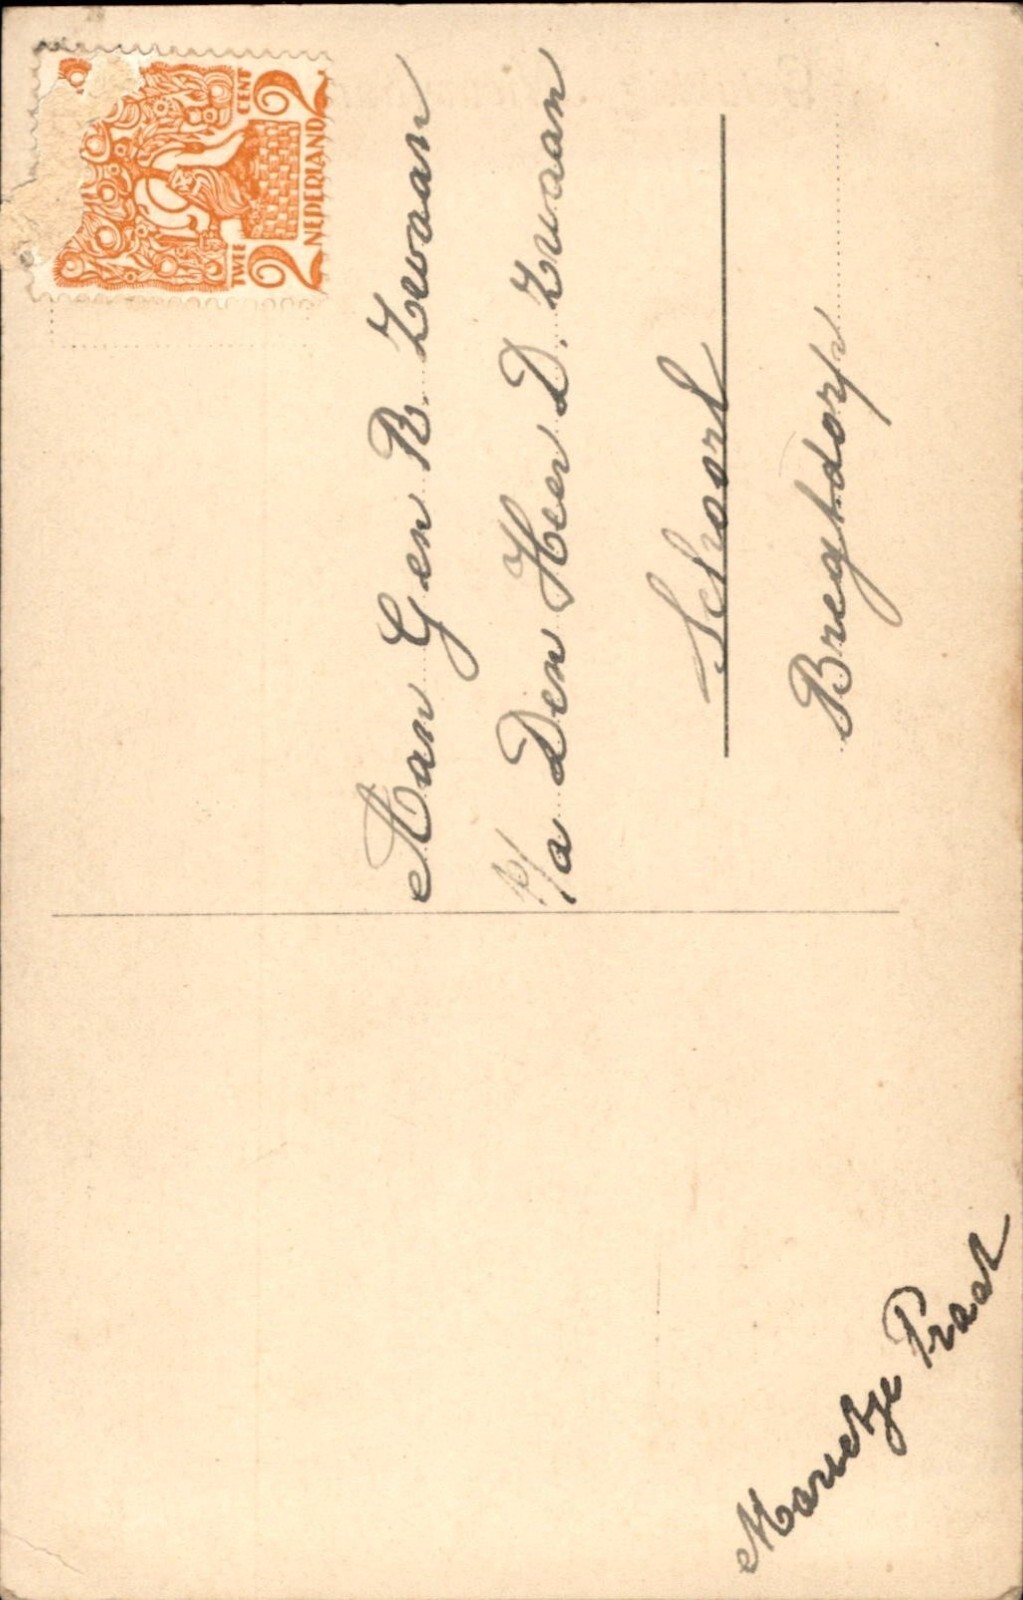 TWEE CENT
2 2
NEDERLAND
Aan Gen B. Zwaan
p/a Den Heer D. Zwaan
Schoorl
Breghdorp
Marietje Praat